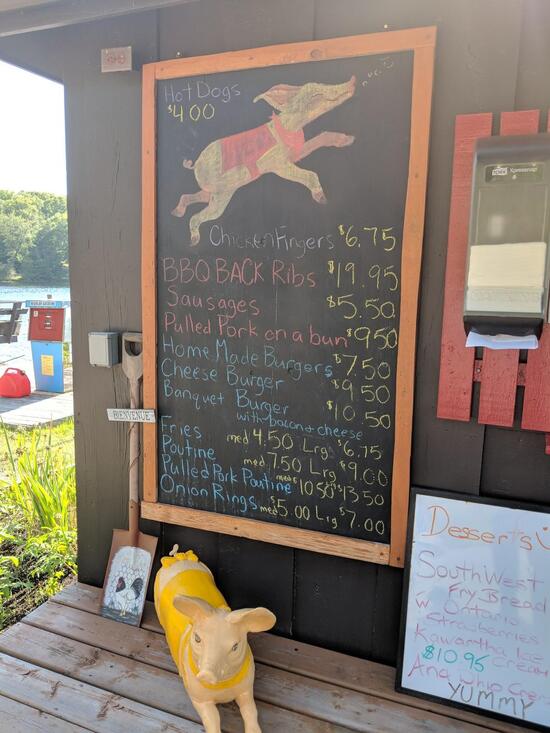 Hot Dogs
$4.00
Chicken Fingers $6.75
BBQ BACK Ribs $19.95
Sausages $5.50
Pulled Pork on a bun $9.50
Home Made Burgers $7.50
Cheese Burger $9.50
Banquet Burger $10.50
with bacon + cheese
Fries med 4.50 Lrg $6.75
Poutine med 7.50 Lrg $9.00
Pulled Pork Poutine med $10.50 $13.50
Onion Rings med $5.00 Lrg $7.00
BIENVENUE
tork Xpressnap
Desserts
SouthWest
Fry Bread
w Ontario
Strawberries
Kawartha Ice
$10.95 Cream
And whip Cre
YUMMY